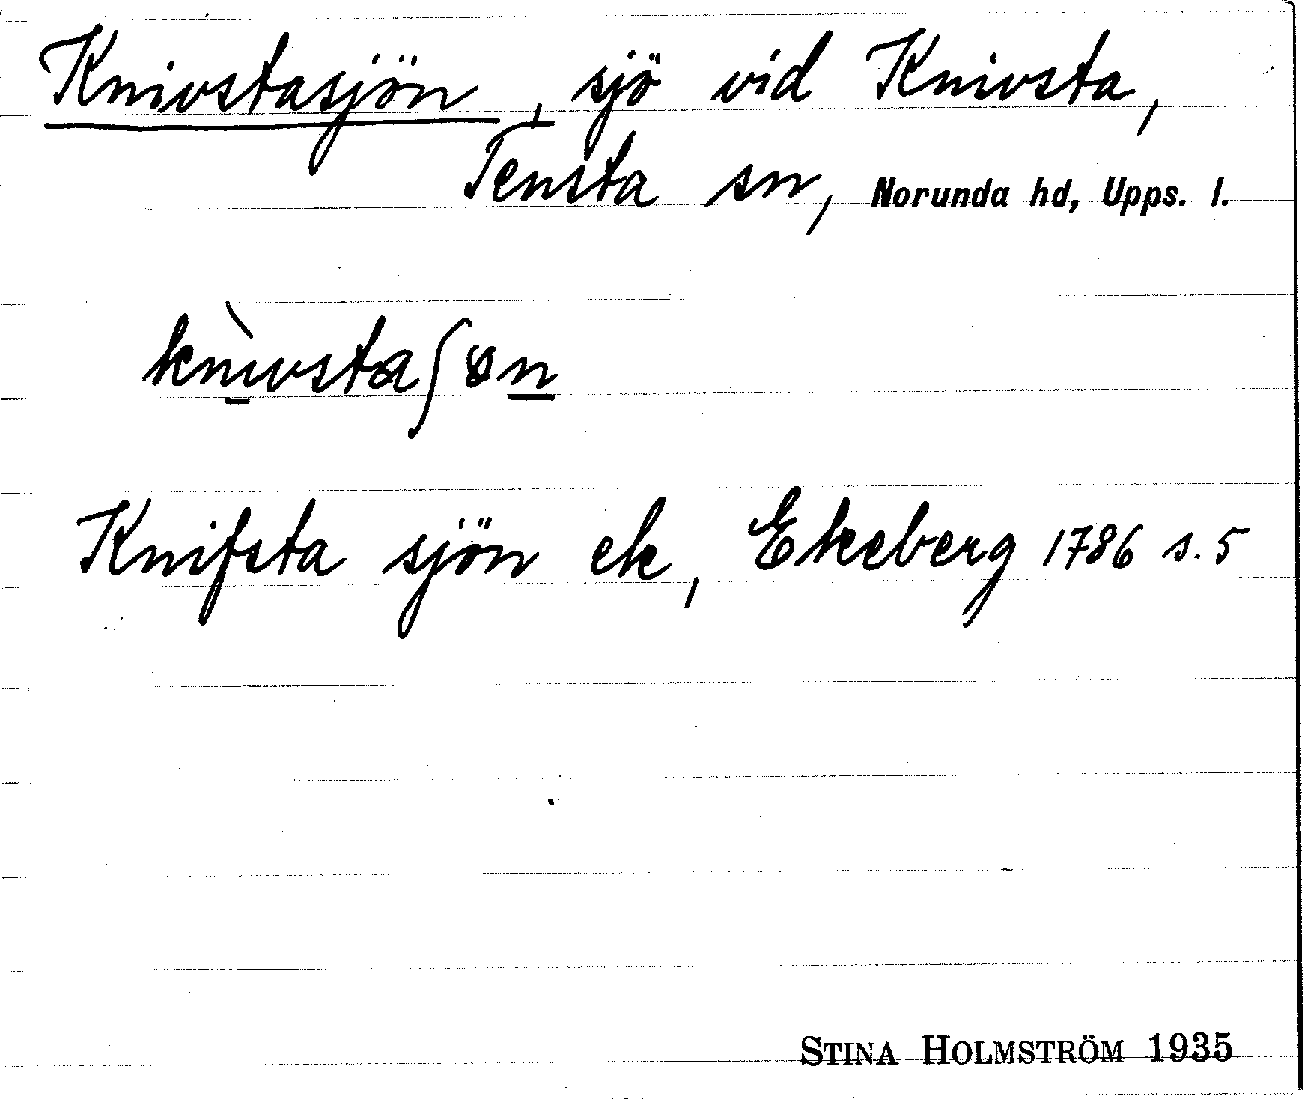 Knivstasjön, sjö vid Knivsta,
Tensta sn, Norunda hd, Upps. l.
knìvstaʃɵn
Knifsta sjön ek, Ekeberg 1786 s. 5
STINA HOLMSTRÖM 1935